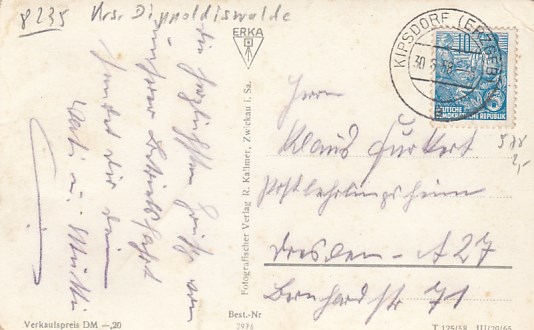 8235 Krs. Dippoldiswalde
Die herzlichsten Grüße von
unserer Betriebsfahrt
sendet dir dein
Vati u. Mutti
ERKA
Fotografischer Verlag R. Kallmer, Zwickau i. Sa.
KIPSDORF (ERZGEB)
10
DEUTSCHE
DEMOKRATISCHE REPUBLIK
Herrn
Klaus Gurkert
Postlehrlingsheim
Dresden - A 27
Bernhardstr 71
Verkaufspreis DM —,20
Best.-Nr
2976
T 125/58 III/29/65